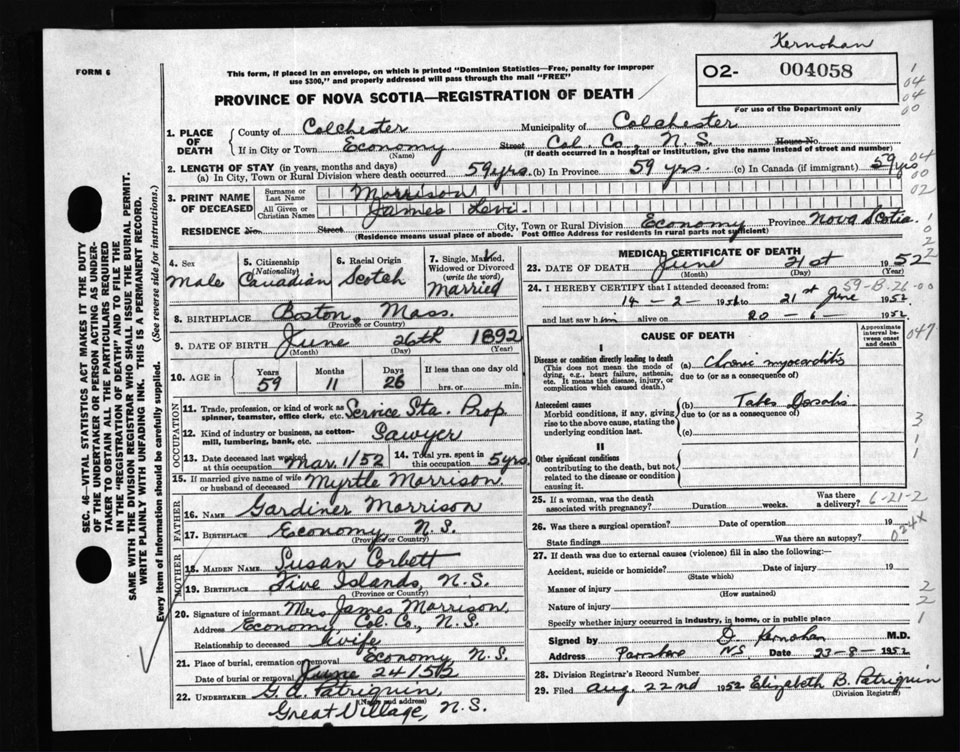 Kernohan
FORM 6
This form, if placed in an envelope, on which is printed "Dominion Statistics—Free, penalty for improper
use $300," and properly addressed will pass through the mail "FREE"
O2- 004058
For use of the Department only
PROVINCE OF NOVA SCOTIA—REGISTRATION OF DEATH
1. PLACE OF DEATH
County of Colchester Municipality of Colchester
If in City or Town Economy Street Col. Co., N. S. House No.
(Name) (If death occurred in a hospital or institution, give the name instead of street and number)
2. LENGTH OF STAY (in years, months and days)
(a) In City, Town or Rural Division where death occurred 59 yrs. (b) In Province 59 yrs. (c) In Canada (if immigrant) 59 yrs
3. PRINT NAME OF DECEASED
Surname or Last Name Morrison
All Given or Christian Names James Levi.
RESIDENCE No. Street City, Town or Rural Division Economy Province Nova Scotia.
(Residence means usual place of abode. Post Office Address for residents in rural parts not sufficient)
4. Sex Male
5. Citizenship (Nationality) Canadian
6. Racial Origin Scotch
7. Single, Married, Widowed or Divorced (write the word) Married
8. BIRTHPLACE Boston, Mass.
(Province or Country)
9. DATE OF BIRTH June 26th 1892
(Month) (Day) (Year)
10. AGE in Years 59 Months 11 Days 26 If less than one day old
hrs. or min.
OCCUPATION
11. Trade, profession, or kind of work as spinner, teamster, office clerk, etc. Service Sta. Prop.
12. Kind of industry or business, as cotton-mill, lumbering, bank, etc. Sawyer
13. Date deceased last worked at this occupation Mar. 1/52 14. Total yrs. spent in this occupation 5 yrs.
15. If married give name of wife or husband of deceased Myrtle Morrison.
FATHER
16. Name Gardiner Morrison
17. Birthplace Economy, N.S.
(Province or Country)
MOTHER
18. MAIDEN NAME Susan Corbett
19. BIRTHPLACE Five Islands, N.S.
(Province or Country)
20. Signature of informant Mrs James Morrison,
Address Economy Col. Co., N.S.
Relationship to deceased wife
21. Place of burial, cremation or removal Economy N.S.
Date of burial or removal June 24/52
22. UNDERTAKER G. A. Patriquin,
(Name and address)
Great Village, N.S.
MEDICAL CERTIFICATE OF DEATH
23. DATE OF DEATH June 21st 1952
(Month) (Day) (Year)
24. I HEREBY CERTIFY that I attended deceased from:
14 - 2 - to 21st June 1952
and last saw him alive on 20 - 6 - 1952
59-B.26-00
CAUSE OF DEATH
Approximate interval between onset and death
047
I
Disease or condition directly leading to death
(This does not mean the mode of dying, e.g., heart failure, asthenia, etc. It means the disease, injury, or complication which caused death.)
(a) Chronic myocarditis
due to (or as a consequence of)
Antecedent causes
Morbid conditions, if any, giving rise to the above cause, stating the underlying condition last.
(b) Tabes Dorsalis
due to (or as a consequence of)
(c)
II
Other significant conditions
contributing to the death, but not related to the disease or condition causing it.
25. If a woman, was the death associated with pregnancy? Duration weeks. Was there a delivery?
6-21-2
26. Was there a surgical operation? Date of operation 19
State findings Was there an autopsy?
024X
27. If death was due to external causes (violence) fill in also the following:—
Accident, suicide or homicide? Date of injury 19
(State which)
Manner of injury
(How sustained)
Nature of injury
Specify whether injury occurred in industry, in home, or in public place
Signed by D. Kernohan M.D.
Address Parrsboro NS Date 23-8-1952
28. Division Registrar's Record Number
29. Filed Aug. 22nd 1952 Elizabeth B. Patriquin
(Division Registrar)
SEC. 46—VITAL STATISTICS ACT MAKES IT THE DUTY
OF THE UNDERTAKER OR PERSON ACTING AS UNDER-
TAKER TO OBTAIN ALL THE PARTICULARS REQUIRED
IN THE "REGISTRATION OF DEATH" AND TO FILE THE
SAME WITH THE DIVISION REGISTRAR WHO SHALL ISSUE THE BURIAL PERMIT.
WRITE PLAINLY WITH UNFADING INK. THIS IS A PERMANENT RECORD.
Every Item of Information should be carefully supplied. (See reverse side for instructions.)